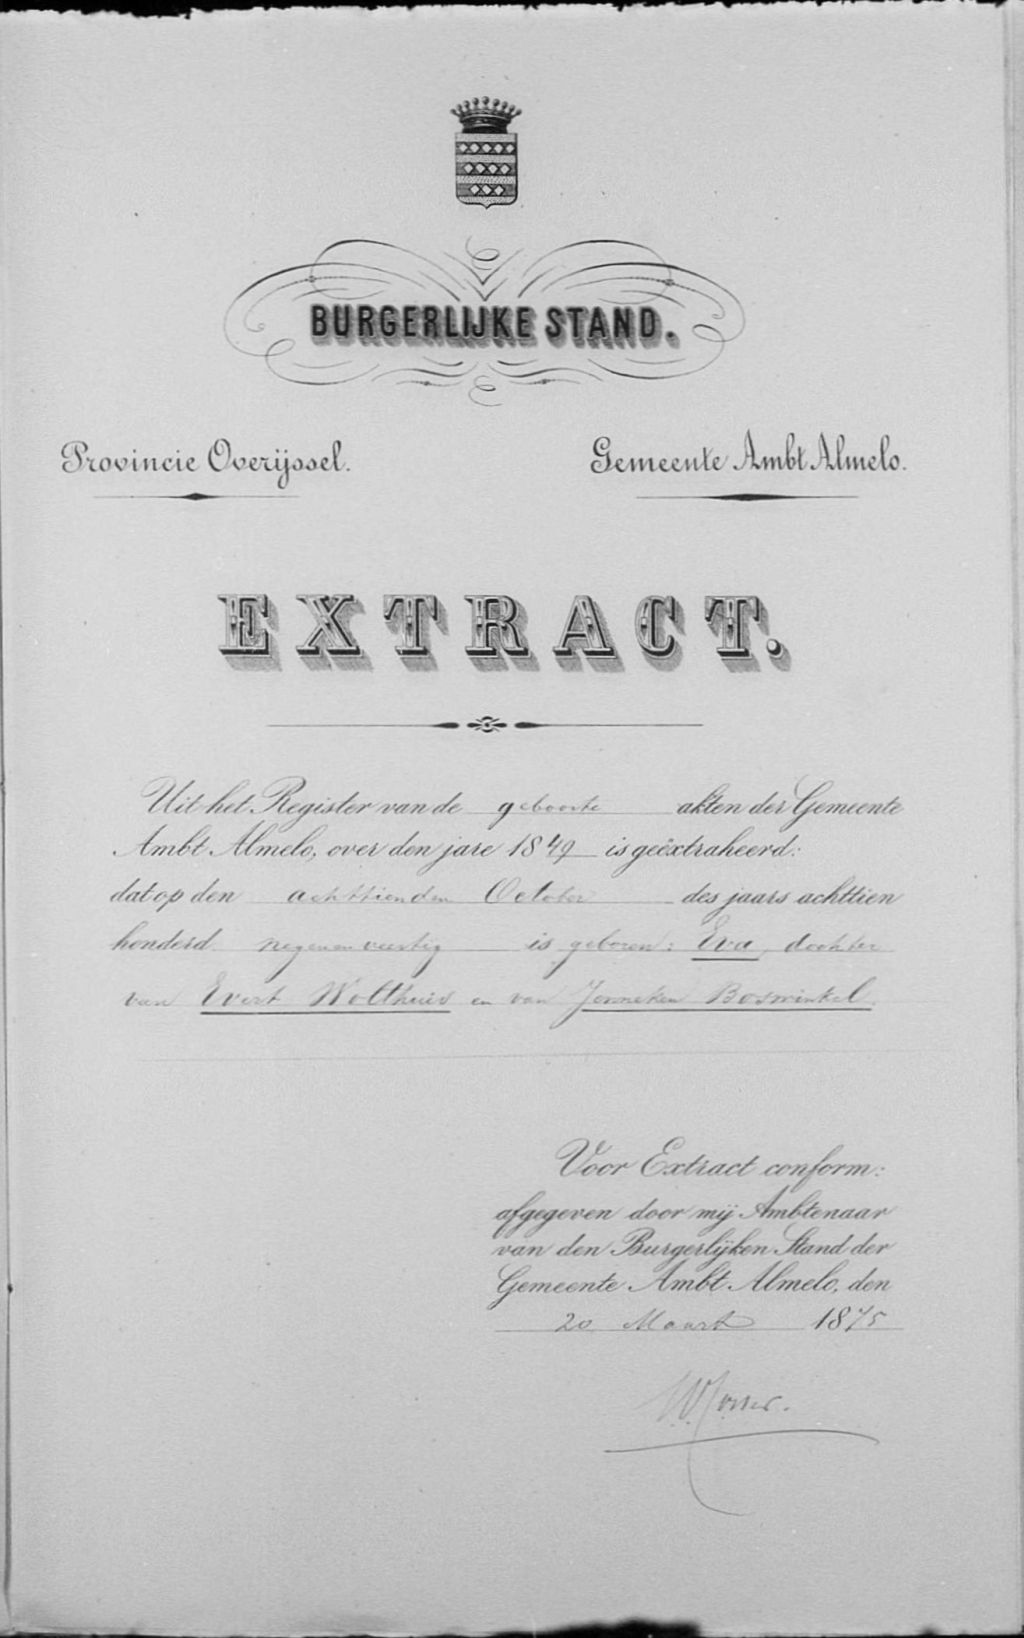 BURGERLIJKE STAND.
Provincie Overijssel.
Gemeente Ambt Almelo.
EXTRACT.
Uit het Register van de geboorte akten der Gemeente
Ambt Almelo, over den jare 1849 is geëxtraheerd:
dat op den achttienden October des jaars achttien
honderd negenenveertig is geboren: Eva, dochter
van Evert Wolthuis en van Jenneken Boswinkel.
Voor Extract conform:
afgegeven door mij Ambtenaar
van den Burgerlijken Stand der
Gemeente Ambt Almelo, den
20 Maart 1875